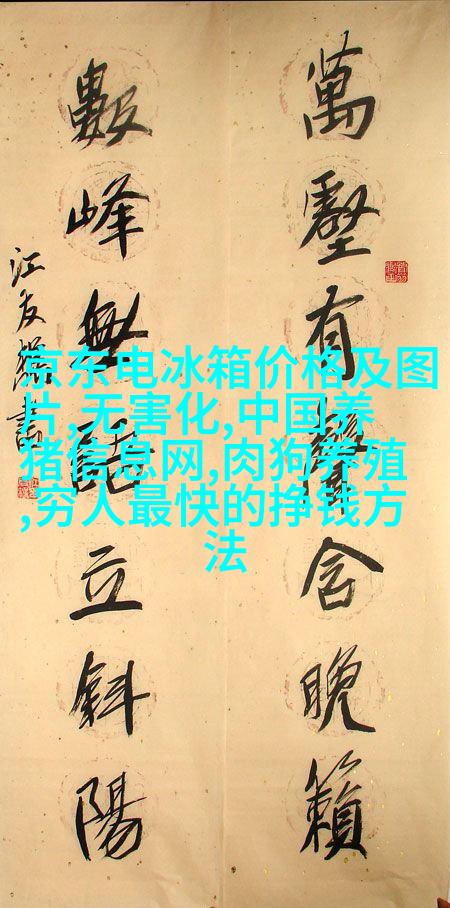 萬壑有聲含晚籟
數峰無語立斜陽
江友樵書
京东电冰箱价格及图
片,无害化,中国养
猪信息网,肉狗养殖
,穷人最快的挣钱方
法